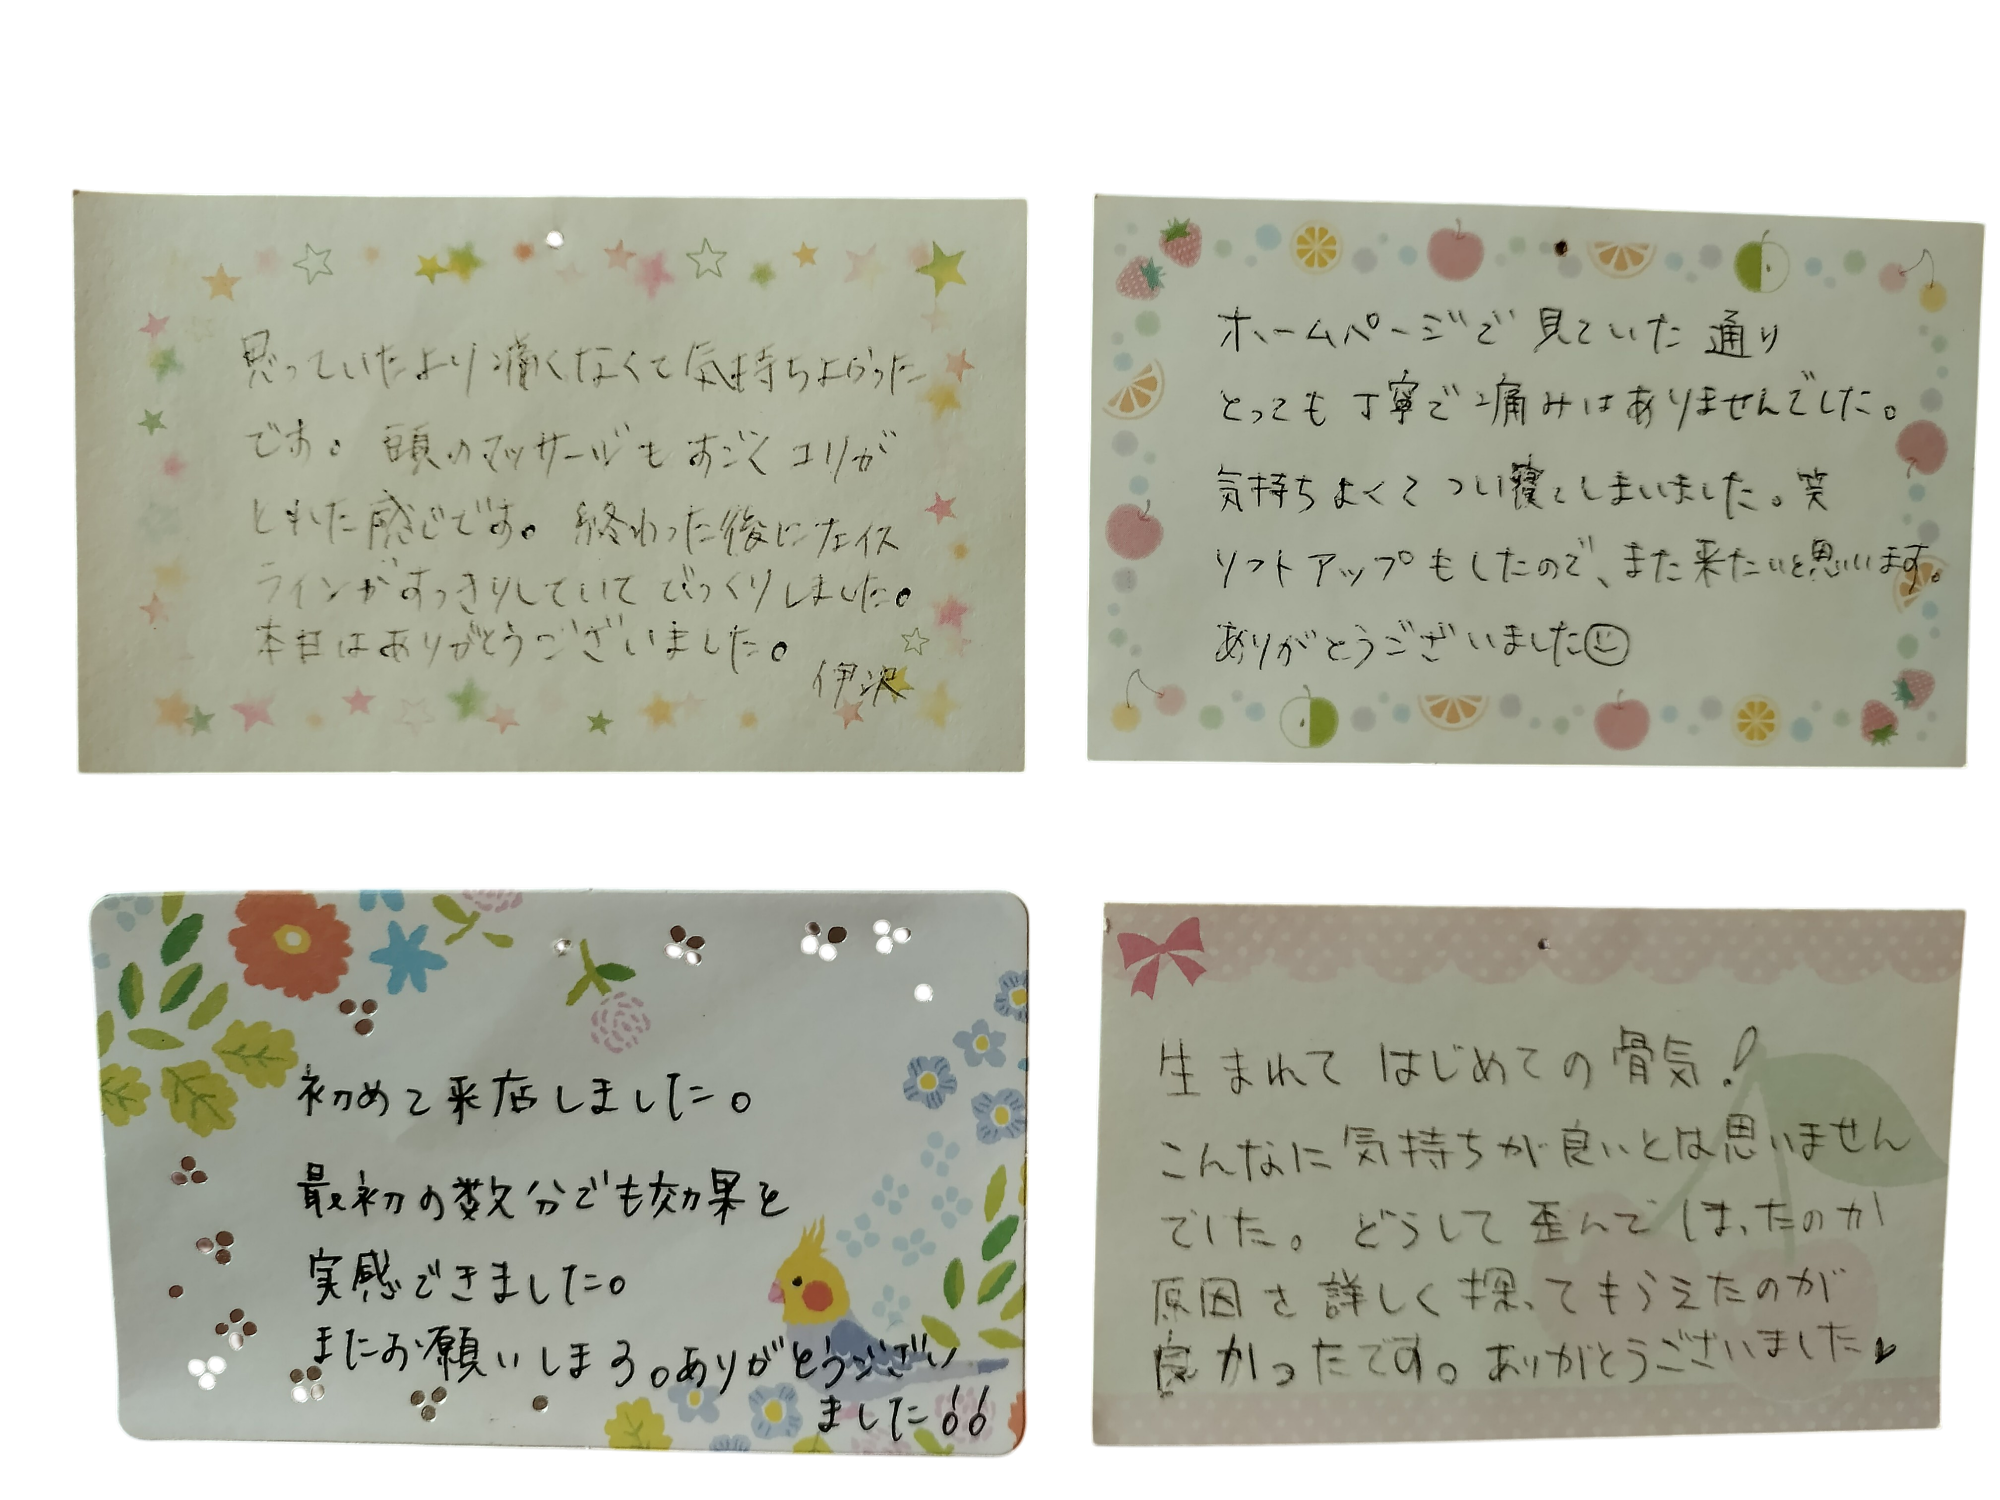 思っていたより痛くなくて気持ちよかった
です。頭のマッサージもすごくコリが
とれた感じです。終わった後にフェイス
ラインがすっきりしていてびっくりしました。
本日はありがとうございました。
伊沢
ホームページで見ていた通り
とっても丁寧で痛みはありませんでした。
気持ちよくてつい寝てしまいました。笑
リフトアップもしたので、また来たいと思います。
ありがとうございました
初めて来店しました。
最初の数分でも効果を
実感できました。
またお願いします。ありがとうござい
ました!!
生まれてはじめての骨気!
こんなに気持ちが良いとは思いません
でした。どうして歪んでしまったのか
原因を詳しく探ってもらえたのが
良かったです。ありがとうございました♥